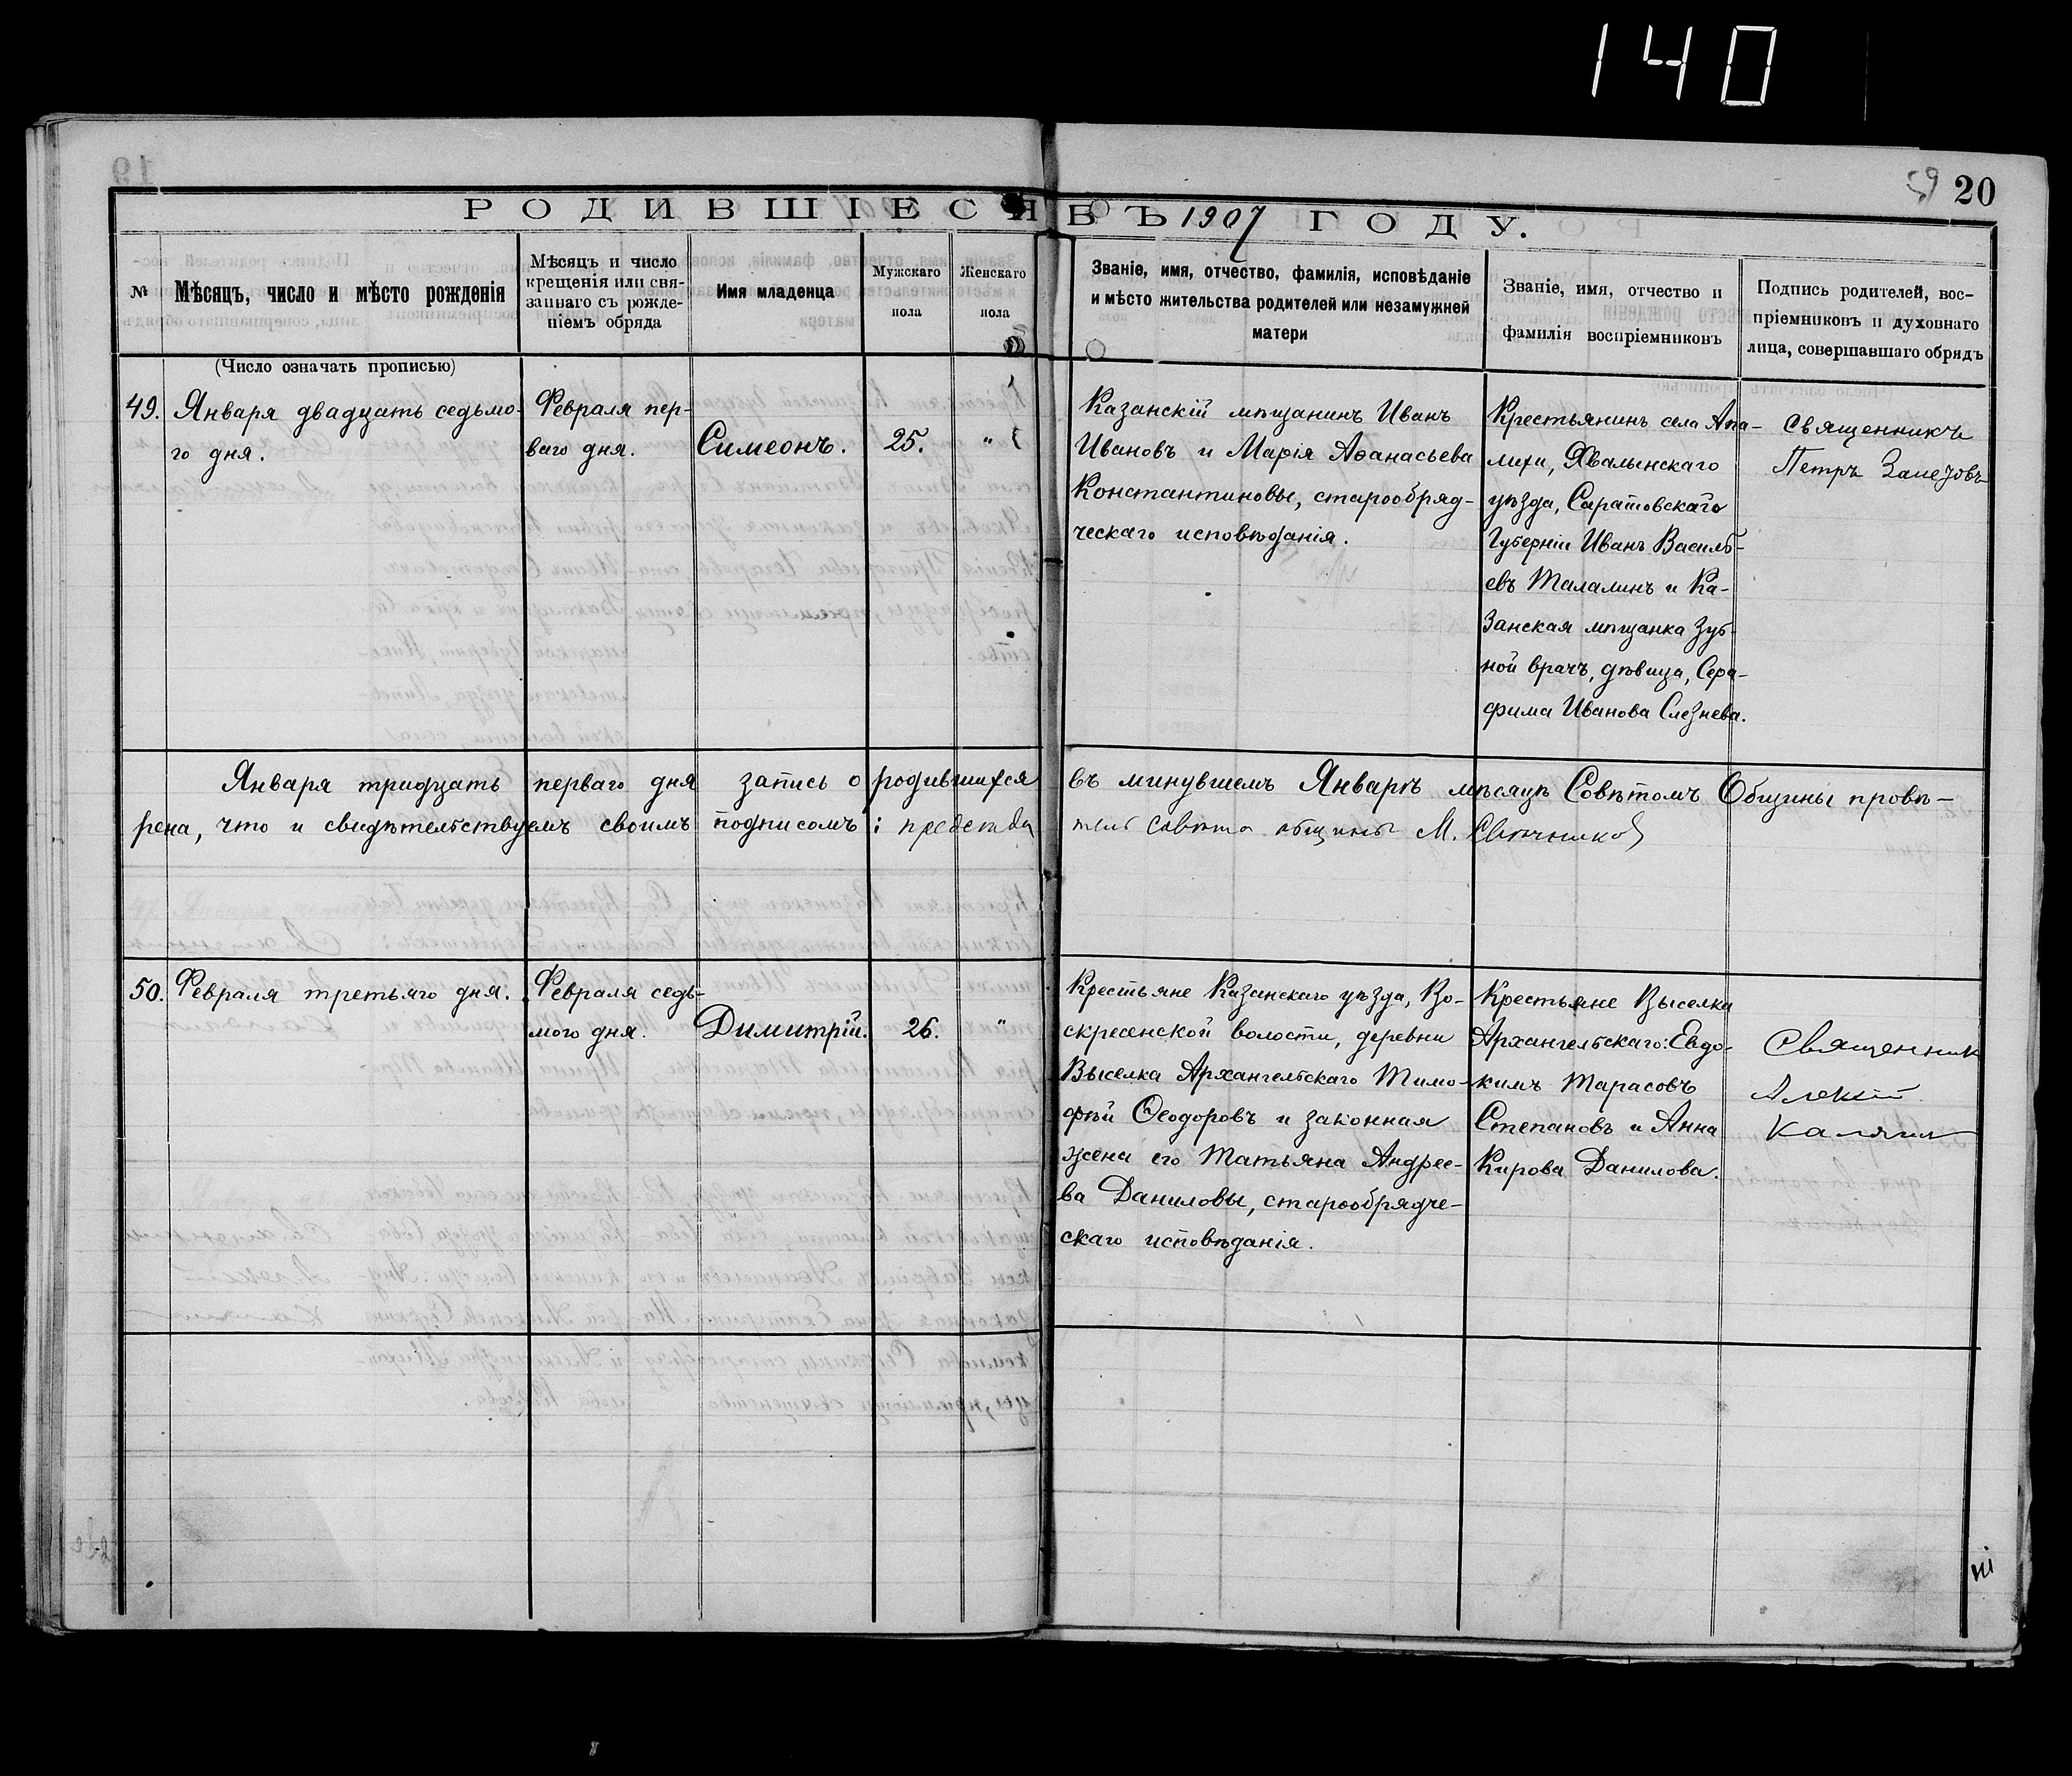 140
20
РОДИВШІЕСЯ ВЪ 1907 ГОДУ.
№
Мѣсяцъ, число и мѣсто рожденія
Мѣсяцъ и число
крещенія или свя-
заннаго съ рожде-
ніемъ обряда
Имя младенца
Мужскаго
пола
Женскаго
пола
Званіе, имя, отчество, фамилія, исповѣданіе
и мѣсто жительства родителей или незамужней
матери
Званіе, имя, отчество и
фамилія воспріемниковъ
Подпись родителей, вос-
пріемниковъ и духовнаго
лица, совершавшаго обрядъ
(Число означать прописью)
49.
Января двадцать седьмо-
го дня.
Февраля пер-
ваго дня.
Симеонъ.
25.
"
Казанскій мѣщанинъ Иванъ
Ивановъ и Марія Аѳанасьева
Константиновы, старообряд-
ческаго исповѣданія.
Крестьянинъ села Апа-
лихи, Хвалынскаго
уѣзда, Саратовскаго
Губерніи Иванъ Василь-
евъ Талалинъ и Ка-
занская мѣщанка Зуб-
ной врачъ, дѣвица, Сера-
фима Иванова Слезнева.
Священникъ
Петръ
Января тридцать перваго дня запись о родившихся въ минувшемъ Январѣ мѣсяцѣ Совѣтомъ Общины провѣ-
рена, что и свидѣтельствуемъ своимъ подписомъ: председатель Совета общины М.
50.
Февраля третьяго дня.
Февраля седь-
мого дня.
Димитрій.
26.
"
Крестьяне Казанскаго уѣзда, Во-
скресенской волости, деревни
Выселка Архангельскаго Тимо-
фѣй Ѳеодоровъ и законная
жена его Татьяна Андрее-
ва Даниловы, старообрядче-
скаго исповѣданія.
Крестьяне Выселка
Архангельскаго: Евдо-
кимъ Тарасовъ
Степановъ и Анна
Кирова Данилова.
Священник
Алексій
Калягин